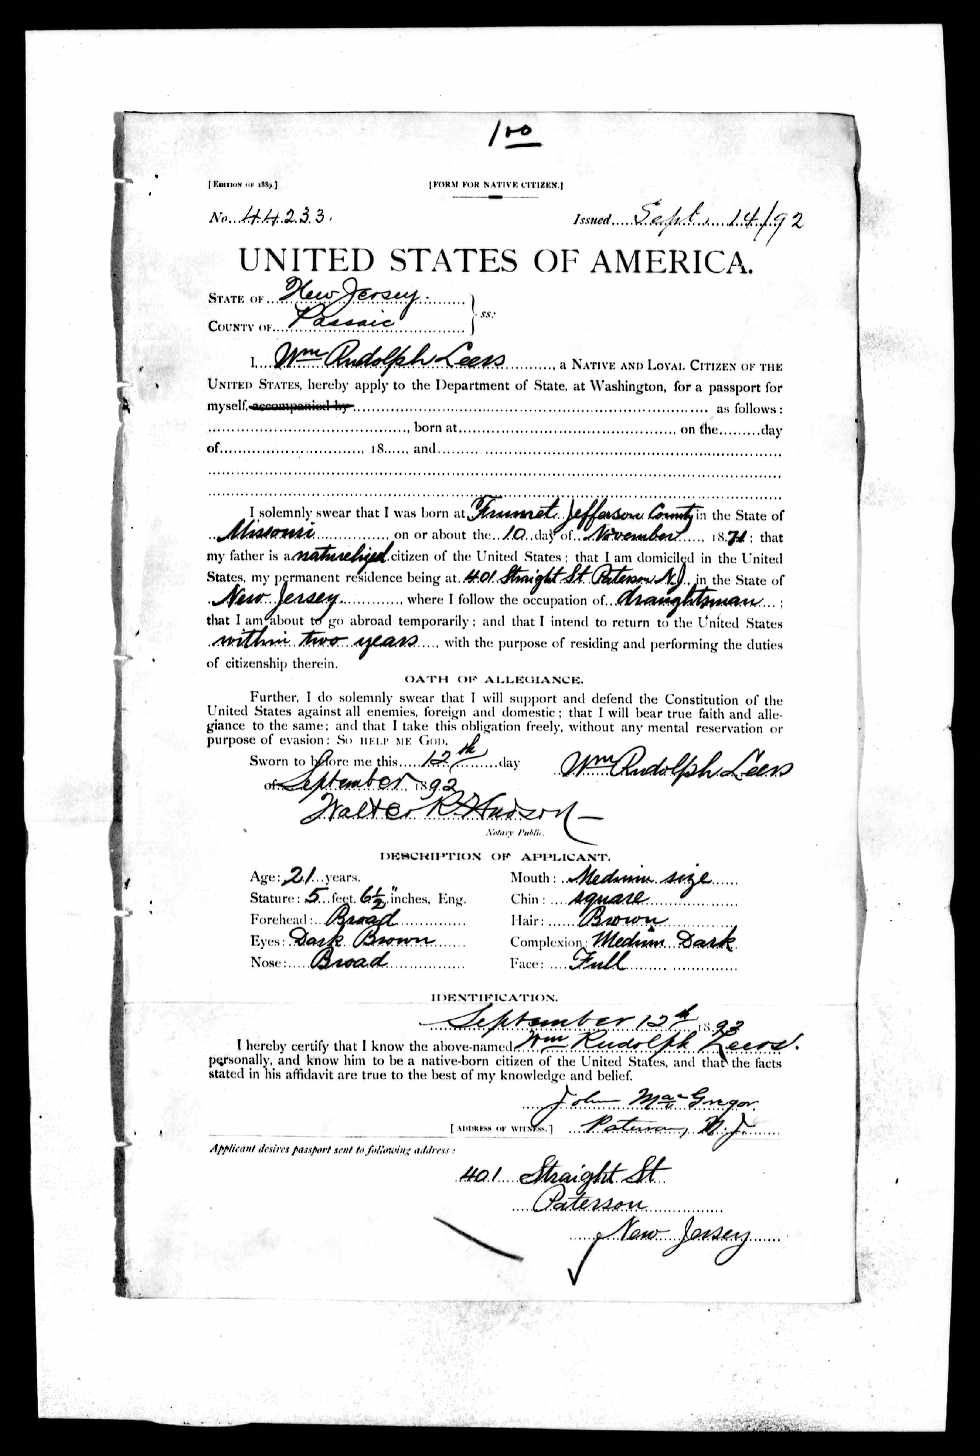 1 00
[EDITION OF 1889.] [FORM FOR NATIVE CITIZEN.]
No. 44233. Issued Sept. 14/92
UNITED STATES OF AMERICA.
STATE OF New Jersey.
COUNTY OF Passaic ss:
I, Wm Rudolph Leers, a NATIVE AND LOYAL CITIZEN OF THE
UNITED STATES, hereby apply to the Department of State, at Washington, for a passport for
myself, accompanied by as follows:
, born at , on the day
of , 18 , and
I solemnly swear that I was born at Jefferson County in the State of
Missouri, on or about the 10 day of November, 1871; that
my father is a naturalized citizen of the United States; that I am domiciled in the United
States, my permanent residence being at 401 Straight St. Paterson N.J., in the State of
New Jersey, where I follow the occupation of draughtsman;
that I am about to go abroad temporarily; and that I intend to return to the United States
within two years, with the purpose of residing and performing the duties
of citizenship therein.
OATH OF ALLEGIANCE.
Further, I do solemnly swear that I will support and defend the Constitution of the
United States against all enemies, foreign and domestic; that I will bear true faith and alle-
giance to the same; and that I take this obligation freely, without any mental reservation or
purpose of evasion: SO HELP ME GOD.
Sworn to before me this 12th day Wm Rudolph Leers
of September, 1892
Walter R. Hudson
Notary Public.
DESCRIPTION OF APPLICANT.
Age: 21 years. Mouth: Medium size
Stature: 5 feet 6½" inches, Eng. Chin: square
Forehead: Broad Hair: Brown
Eyes: Dark Brown Complexion: Medium Dark
Nose: Broad Face: Full
IDENTIFICATION.
September 12th 1892
I hereby certify that I know the above-named Wm Rudolph Leers.
personally, and know him to be a native-born citizen of the United States, and that the facts
stated in his affidavit are true to the best of my knowledge and belief.
John MacGregor
[ADDRESS OF WITNESS.] Paterson, N.J.
Applicant desires passport sent to following address:
401 Straight St
Paterson
New Jersey